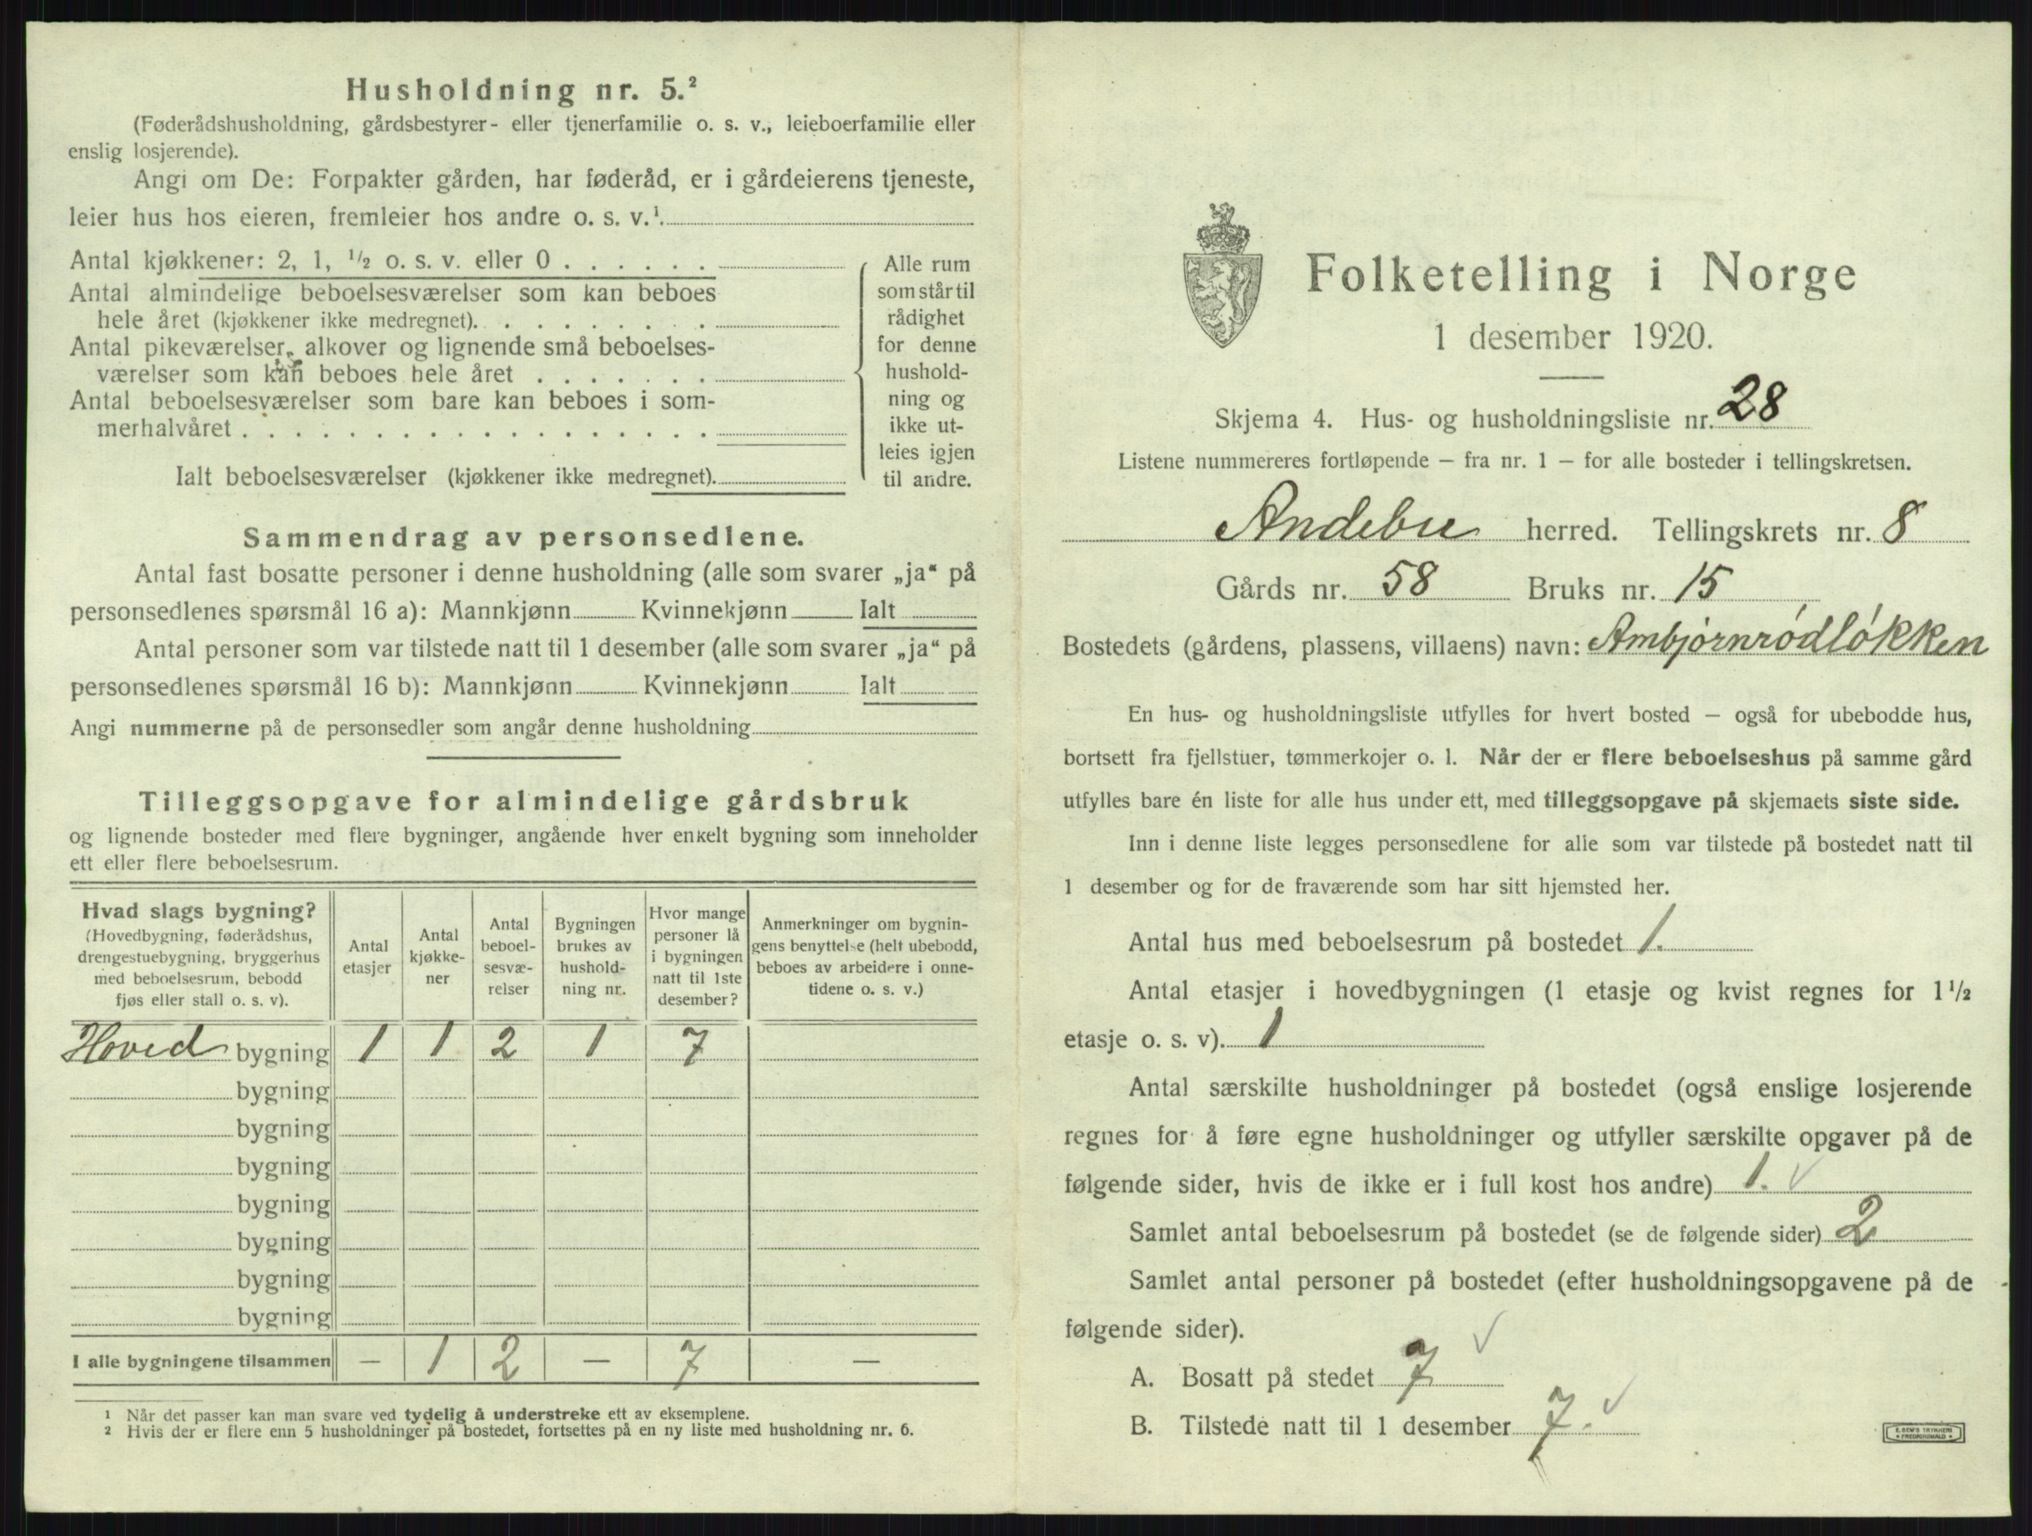 Husholdning nr. 5.²
(Føderådshusholdning, gårdsbestyrer- eller tjenerfamilie o. s. v., leieboerfamilie eller
enslig losjerende).
Angi om De: Forpakter gården, har føderåd, er i gårdeierens tjeneste,
leier hus hos eieren, fremleier hos andre o. s. v.¹
Antal kjøkkener: 2, 1, ½ o. s. v. eller 0 . . . . . .
Antal almindelige beboelsesværelser som kan beboes
hele året (kjøkkener ikke medregnet). . . . . . . . .
Antal pikeværelser, alkover og lignende små beboelses-
værelser som kan beboes hele året . . . . . . .
Antal beboelsesværelser som bare kan beboes i som-
merhalvåret . . . . . . . . . . . . . . . . . .
Ialt beboelsesværelser (kjøkkener ikke medregnet).
Alle rum
som står til
rådighet
for denne
hushold-
ning og
ikke ut-
leies igjen
til andre.
Sammendrag av personsedlene.
Antal fast bosatte personer i denne husholdning (alle som svarer „ja“ på
personsedlenes spørsmål 16 a): Mannkjønn Kvinnekjønn Ialt
Antal personer som var tilstede natt til 1 desember (alle som svarer „ja“ på
personsedlenes spørsmål 16 b): Mannkjønn Kvinnekjønn Ialt
Angi nummerne på de personsedler som angår denne husholdning
Tilleggsopgave for almindelige gårdsbruk
og lignende bosteder med flere bygninger, angående hver enkelt bygning som inneholder
ett eller flere beboelsesrum.
Hvad slags bygning?
(Hovedbygning, føderådshus,
drengestuebygning, bryggerhus
med beboelsesrum, bebodd
fjøs eller stall o. s. v).
Antal
etasjer
Antal
kjøkke-
ner
Antal
beboel-
sesvæ-
relser
Bygningen
brukes av
hushold-
ning nr.
Hvor mange
personer lå
i bygningen
natt til 1ste
desember?
Anmerkninger om bygnin-
gens benyttelse (helt ubebodd,
beboes av arbeidere i onne-
tidene o. s. v.)
Hoved bygning 1 1 2 1 7
bygning
bygning
bygning
bygning
bygning
bygning
bygning
I alle bygningene tilsammen — 1 2 — 7 —
¹ Når det passer kan man svare ved tydelig å understreke ett av eksemplene.
² Hvis der er flere enn 5 husholdninger på bostedet, fortsettes på en ny liste med husholdning nr. 6.
Folketelling i Norge
1 desember 1920.
Skjema 4. Hus- og husholdningsliste nr. 28
Listene nummereres fortløpende — fra nr. 1 — for alle bosteder i tellingskretsen.
Andebu herred. Tellingskrets nr. 8
Gårds nr. 58 Bruks nr. 15
Bostedets (gårdens, plassens, villaens) navn: Ambjørnrødløkken
En hus- og husholdningsliste utfylles for hvert bosted — også for ubebodde hus,
bortsett fra fjellstuer, tømmerkojer o. l. Når der er flere beboelseshus på samme gård
utfylles bare én liste for alle hus under ett, med tilleggsopgave på skjemaets siste side.
Inn i denne liste legges personsedlene for alle som var tilstede på bostedet natt til
1 desember og for de fraværende som har sitt hjemsted her.
Antal hus med beboelsesrum på bostedet 1.
Antal etasjer i hovedbygningen (1 etasje og kvist regnes for 1½
etasje o. s. v). 1
Antal særskilte husholdninger på bostedet (også enslige losjerende
regnes for å føre egne husholdninger og utfyller særskilte opgaver på de
følgende sider, hvis de ikke er i full kost hos andre) 1. ✓
Samlet antal beboelsesrum på bostedet (se de følgende sider) 2
Samlet antal personer på bostedet (efter husholdningsopgavene på de
følgende sider).
A. Bosatt på stedet 7 ✓
B. Tilstede natt til 1 desember 7. ✓